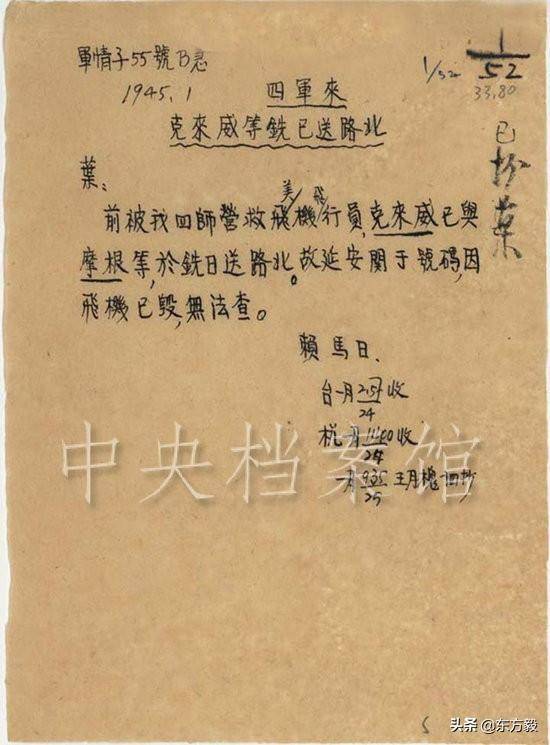 軍情子55號B急
1945.1
1/52
1
52
33.80
四軍來
克來威等銑已送路北
已抄葉
葉:
美 飛
前被我四師營救飛機行員,克來威已與
摩根等,於銑日送路北。故延安關于號码,因
飛機已毀,無法查。
賴 馬日.
台一月 收
24
杭一月 收
24
一月935 王月槐 四抄
25
中央档案馆
5
头条 @东方毅